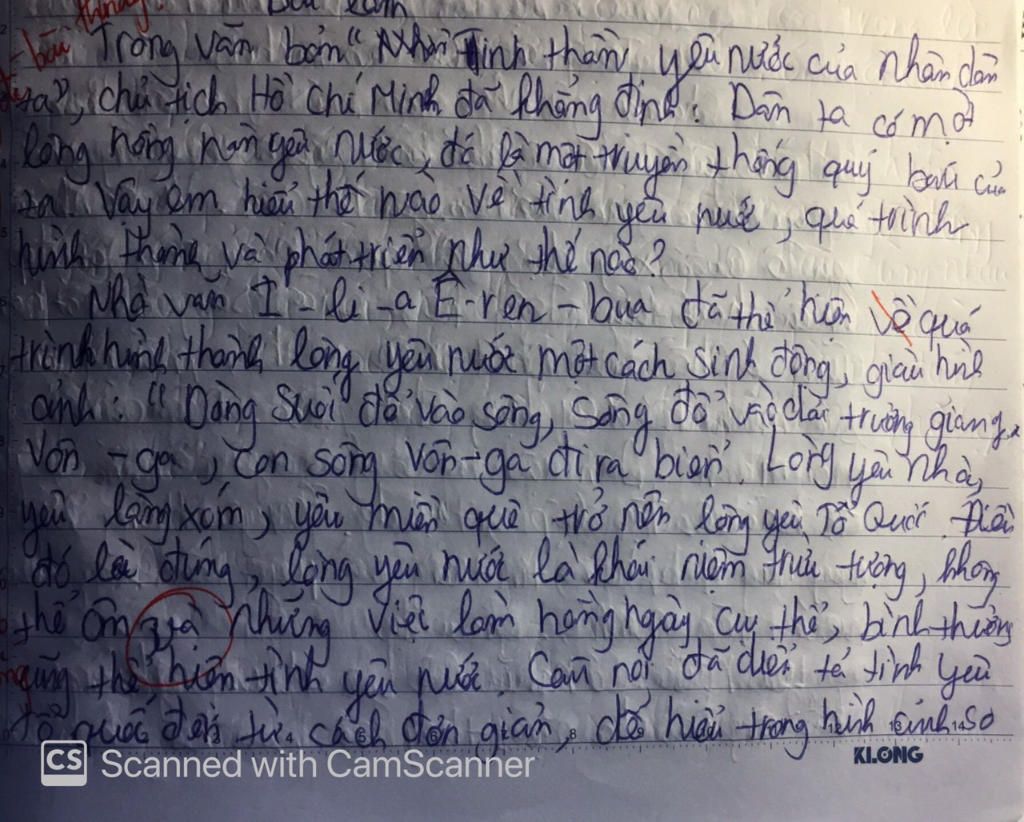 Bài làm
bài Trong văn bản "Tinh thần yêu nước của nhân dân
ta", chủ tịch Hồ Chí Minh đã khẳng định: Dân ta có một
lòng nồng nàn yêu nước, đó là một truyền thống quý báu của
ta. Vậy em hiểu thế nào về tình yêu nước, quá trình
hình thành và phát triển như thế nào?
Nhà văn I-li-a Ê-ren-bua đã thể hiện về quá
trình hình thành lòng yêu nước một cách sinh động, giàu hình
ảnh: "Dòng suối đổ vào sông, sông đổ vào dải trường giang
Vôn-ga, con sông Vôn-ga đi ra biển. Lòng yêu nhà,
yêu làng xóm, yêu miền quê trở nên lòng yêu Tổ Quốc. Điều
đó là đúng, lòng yêu nước là khái niệm trừu tượng, không
thể ôm những việc làm hằng ngày cụ thể, bình thường
cũng thể hiện tình yêu nước. Câu nói đã diễn tả tình yêu
tổ quốc đến từ cách đơn giản, dễ hiểu trong hình ảnh so
KLONG
CS Scanned with CamScanner